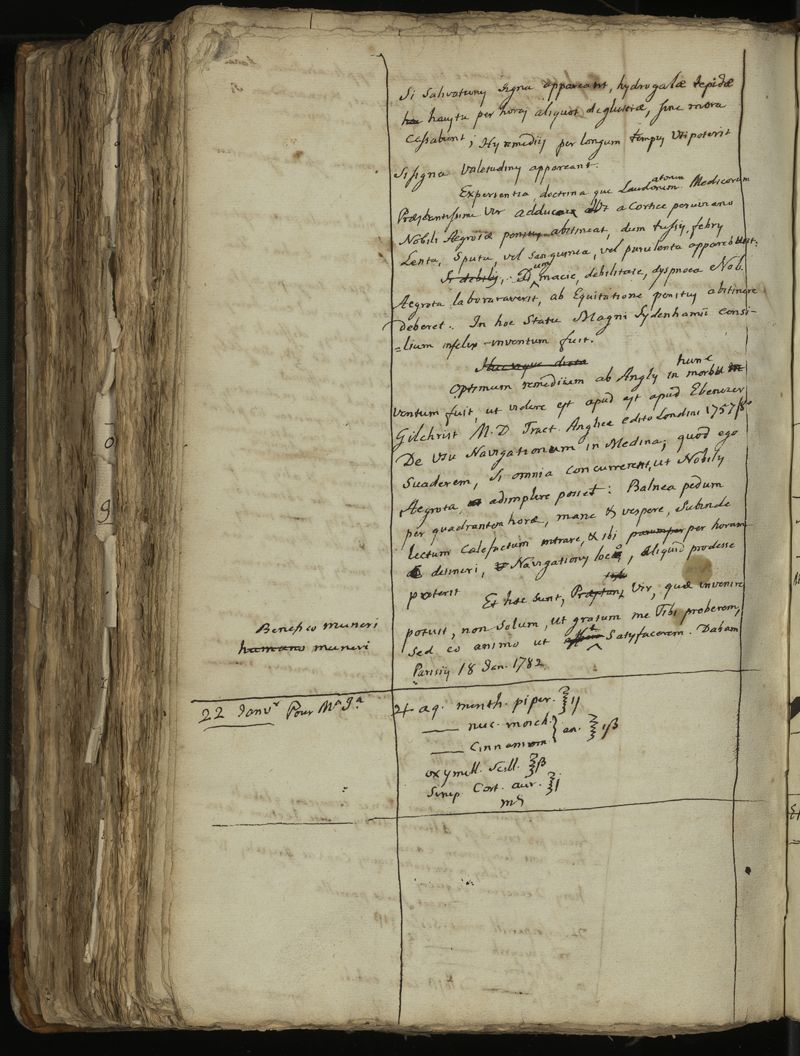 Si Salivationis signa appareant, hydrogalæ tepidæ
haustu per horas aliquot deglutitæ, sine mora
cessabunt; Hys remediis per longum tempus Uti poterit
si signa Valetudinis appareant.
Experientia doctrina que Laudatorum Medicorum
Præstantissime Vir adducor Ut a Cortice peruviano
Nobilis Ægrota penitus abstineat, dum tussis, febris
Lenta, Sputa, vel sanguinea, vel purulenta apparebunt;
Si debilis, Dum macie, debilitate, dyspnoea Nob.
Aegrota laboraverit, ab Equitatione penitus abstinere
deberet. In hoc Statu Magni Sydenhamii consi-
-lium infelix inventum fuit.
Hucusque dicta
Optimum remedium ab Anglis in hunc morbum in
ventum fuit, ut videre est apud Ebenezer
Gilchrist M.D Tract. Anglice edito Londini 1757
De Usu Navigationum in Medicina; quod ego
Suaderem, si omnia concurrerent, ut Nobilis
Aegrota, adimplere posset: Balnea pedum
per quadrantem horæ, mane & vespere, subinde
lectum calefactum intrare, & ibi per horam
detineri, Navigationis loco, aliquid prodesse
poterit
Et hæc sunt, Vir, quæ invenire
potui, non Solum, ut gratum me Tibi proberem,
Benefico muneri
humano muneri
Sed eo animo ut Satysfacerem. Dabam
Parisiis 18 Jan. 1782
22 Janvr Pour Me
♃ aq. menth. piper. ℥ij
—— nuc. mosch.
—— Cinnamom } an. ℥iβ
oxymell. Scill. ℥β
Sirup Cort. aur. ℥j